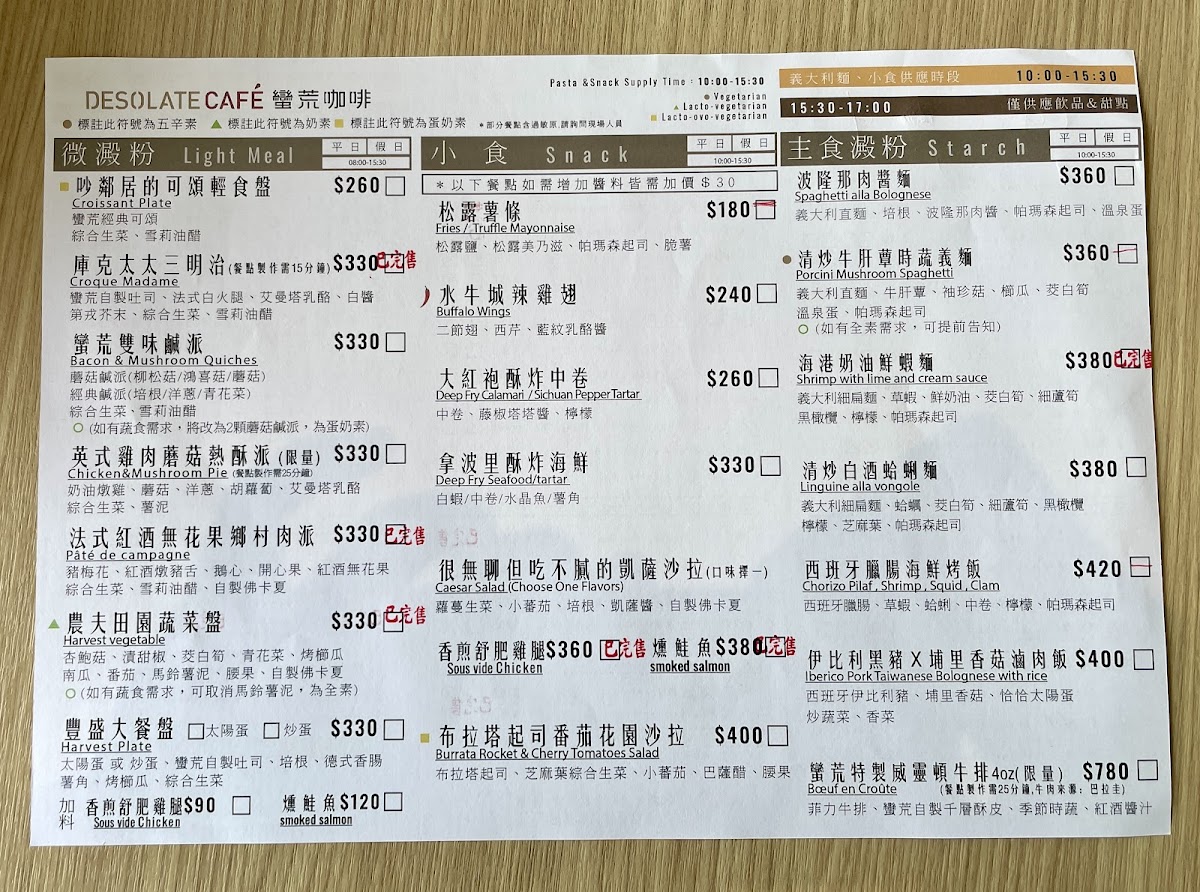 DESOLATE CAFÉ 蠻荒咖啡
● 標註此符號為五辛素 ▲ 標註此符號為奶素 ■ 標註此符號為蛋奶素 *部分餐點含過敏原,請詢問現場人員
Pasta &Snack Supply Time : 10:00-15:30
● Vegetarian
▲ Lacto-vegetarian
■ Lacto-ovo-vegetarian
義大利麵、小食供應時段 10:00-15:30
15:30-17:00 僅供應飲品&甜點
微澱粉 Light Meal 平日 假日
08:00-15:30
吵鄰居的可頌輕食盤 $260
Croissant Plate
蠻荒經典可頌
綜合生菜、雪莉油醋
庫克太太三明治(餐點製作需15分鐘) $330 已完售
Croque Madame
蠻荒自製吐司、法式白火腿、艾曼塔乳酪、白醬
第戎芥末、綜合生菜、雪莉油醋
蠻荒雙味鹹派 $330
Bacon & Mushroom Quiches
蘑菇鹹派(柳松菇/鴻喜菇/蘑菇)
經典鹹派(培根/洋蔥/青花菜)
綜合生菜、雪莉油醋
(如有蔬食需求，將改為2顆蘑菇鹹派，為蛋奶素)
英式雞肉蘑菇熱酥派(限量) $330
Chicken&Mushroom Pie (餐點製作需25分鐘)
奶油燉雞、蘑菇、洋蔥、胡蘿蔔、艾曼塔乳酪
綜合生菜、薯泥
法式紅酒無花果鄉村肉派 $330 已完售
Pâté de campagne
豬梅花、紅酒燉豬舌、鵝心、開心果、紅酒無花果
綜合生菜、雪莉油醋、自製佛卡夏
農夫田園蔬菜盤 $330 已完售
Harvest vegetable
杏鮑菇、漬甜椒、茭白筍、青花菜、烤櫛瓜
南瓜、番茄、馬鈴薯泥、腰果、自製佛卡夏
(如有蔬食需求，可取消馬鈴薯泥，為全素)
豐盛大餐盤 太陽蛋 炒蛋 $330
Harvest Plate
太陽蛋 或 炒蛋、蠻荒自製吐司、培根、德式香腸
薯角、烤櫛瓜、綜合生菜
加料 香煎舒肥雞腿$90 燻鮭魚$120
Sous vide Chicken smoked salmon
小食 Snack 平日 假日
10:00-15:30
*以下餐點如需增加醬料皆需加價$30
松露薯條 $180
Fries / Truffle Mayonnaise
松露鹽、松露美乃滋、帕瑪森起司、脆薯
水牛城辣雞翅 $240
Buffalo Wings
二節翅、西芹、藍紋乳酪醬
大紅袍酥炸中卷 $260
Deep Fry Calamari / Sichuan Pepper Tartar
中卷、藤椒塔塔醬、檸檬
拿波里酥炸海鮮 $330
Deep Fry Seafood/tartar
白蝦/中卷/水晶魚/薯角
很無聊但吃不膩的凱薩沙拉(口味擇一)
Caesar Salad (Choose One Flavors)
蘿蔓生菜、小蕃茄、培根、凱薩醬、自製佛卡夏
香煎舒肥雞腿$360 已完售 燻鮭魚$380 已完售
Sous vide Chicken smoked salmon
布拉塔起司番茄花園沙拉 $400
Burrata Rocket & Cherry Tomatoes Salad
布拉塔起司、芝麻葉綜合生菜、小蕃茄、巴薩醋、腰果
主食澱粉 Starch 平日 假日
10:00-15:30
波隆那肉醬麵 $360
Spaghetti alla Bolognese
義大利直麵、培根、波隆那肉醬、帕瑪森起司、溫泉蛋
清炒牛肝蕈時蔬義麵 $360
Porcini Mushroom Spaghetti
義大利直麵、牛肝蕈、袖珍菇、櫛瓜、茭白筍
溫泉蛋、帕瑪森起司
(如有全素需求，可提前告知)
海港奶油鮮蝦麵 $380 已完售
Shrimp with lime and cream sauce
義大利細扁麵、草蝦、鮮奶油、茭白筍、細蘆筍
黑橄欖、檸檬、帕瑪森起司
清炒白酒蛤蜊麵 $380
Linguine alla vongole
義大利細扁麵、蛤蠣、茭白筍、細蘆筍、黑橄欖
檸檬、芝麻葉、帕瑪森起司
西班牙臘腸海鮮烤飯 $420
Chorizo Pilaf , Shrimp , Squid , Clam
西班牙臘腸、草蝦、蛤蜊、中卷、檸檬、帕瑪森起司
伊比利黑豬 X 埔里香菇滷肉飯 $400
Iberico Pork Taiwanese Bolognese with rice
西班牙伊比利豬、埔里香菇、恰恰太陽蛋
炒蔬菜、香菜
蠻荒特製威靈頓牛排4oz(限量) $780
Bœuf en Croûte (餐點製作需25分鐘,牛肉來源：巴拉圭)
菲力牛排、蠻荒自製千層酥皮、季節時蔬、紅酒醬汁